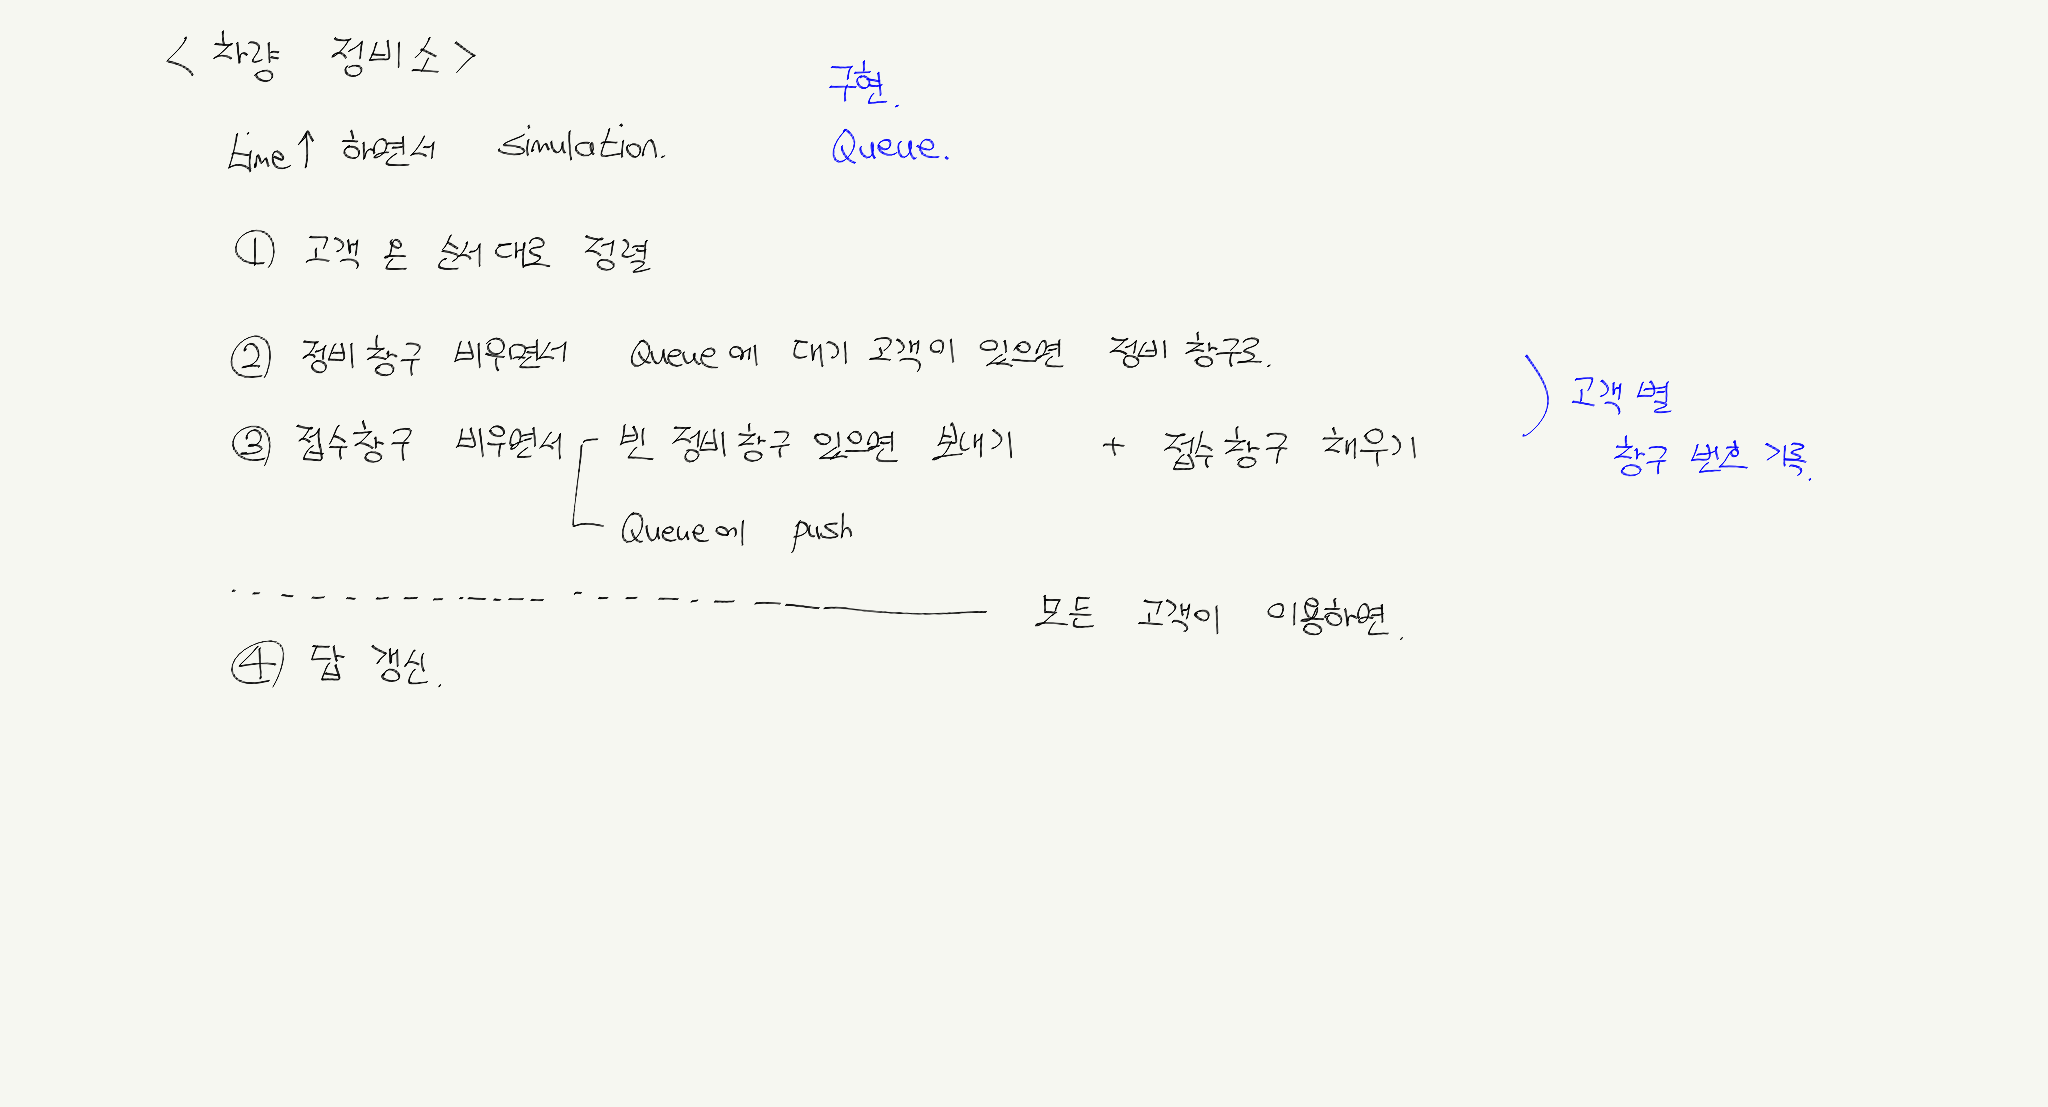 < 차량 정비소 >
구현.
time↑ 하면서 simulation.
Queue.
① 고객은 순서대로 정렬
② 정비창구 비우면서 Queue에 대기 고객이 있으면 정비 창구로.
③ 접수창구 비우면서 빈 정비창구 있으면 보내기 + 접수창구 채우기
Queue에 push
고객별
창구 번호 기록.
모든 고객이 이용하면.
④ 답 갱신.